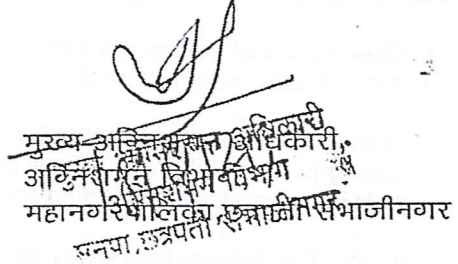 मुख्य अग्निशमन अधिकारी,
अग्निशमन विभाग
महानगरपालिका छत्रपती संभाजीनगर
मनपा, छत्रपती संभाजीनगर